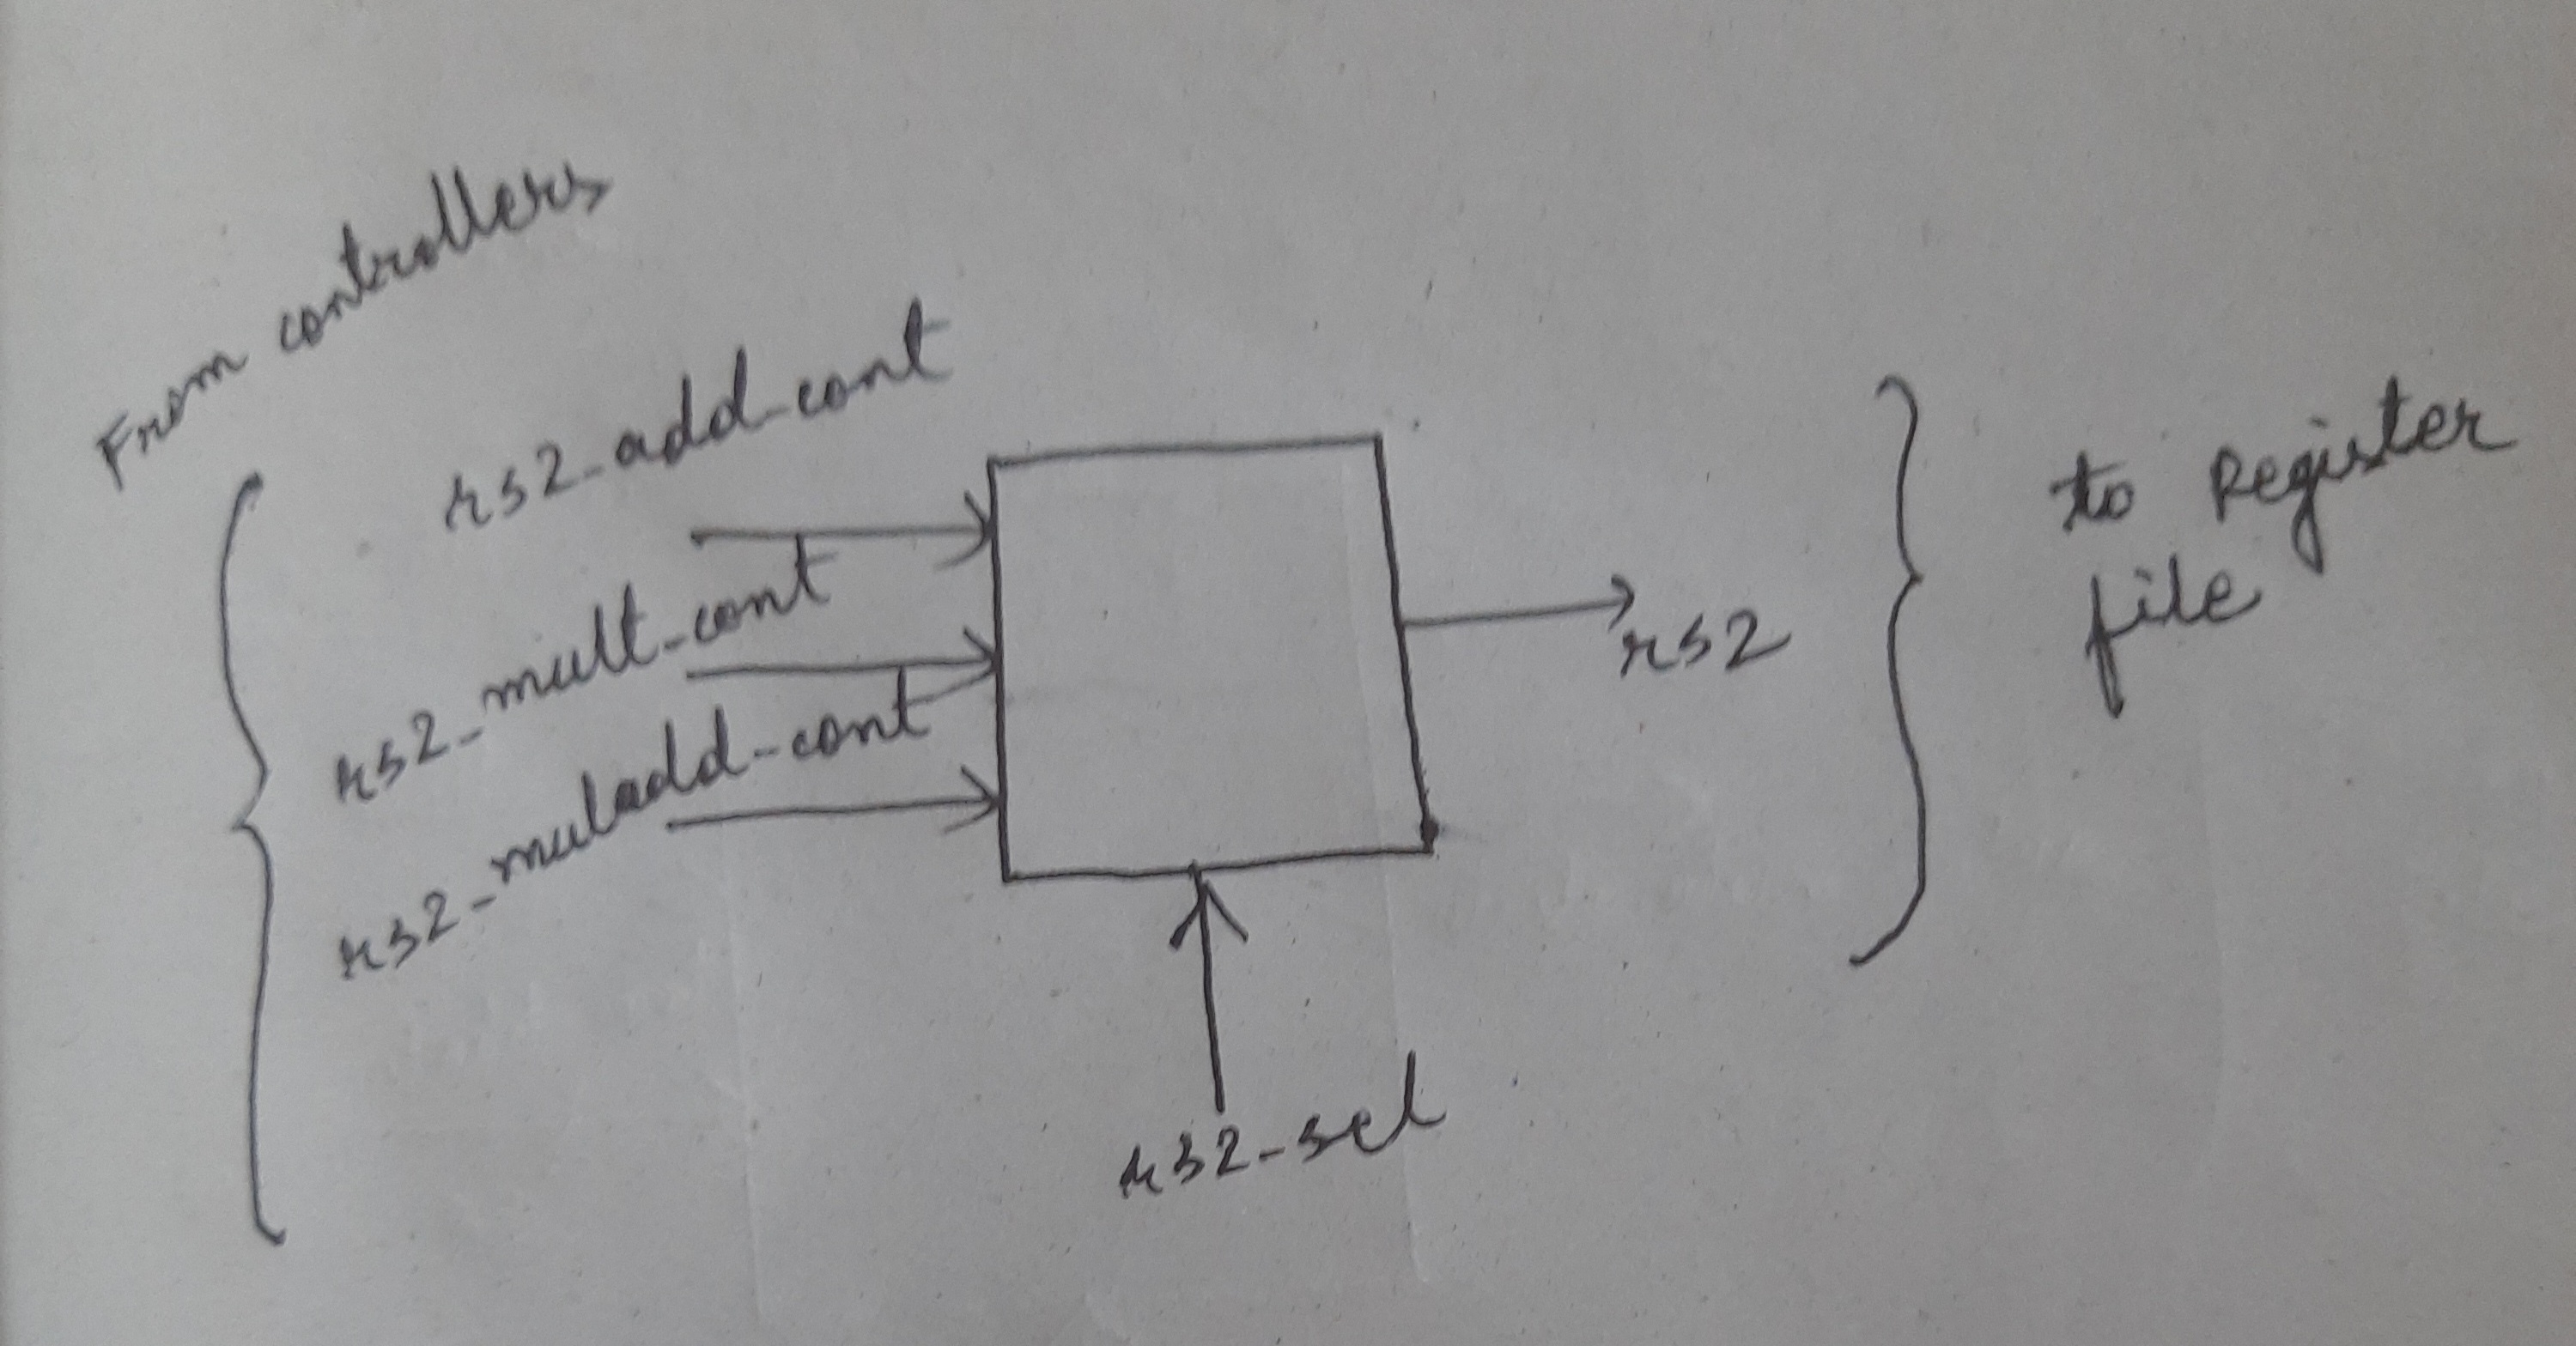 From controllers
rs2_add_cont
rs2_mult_cont
rs2_muladd_cont
rs2
to Register
file
rs2_sel